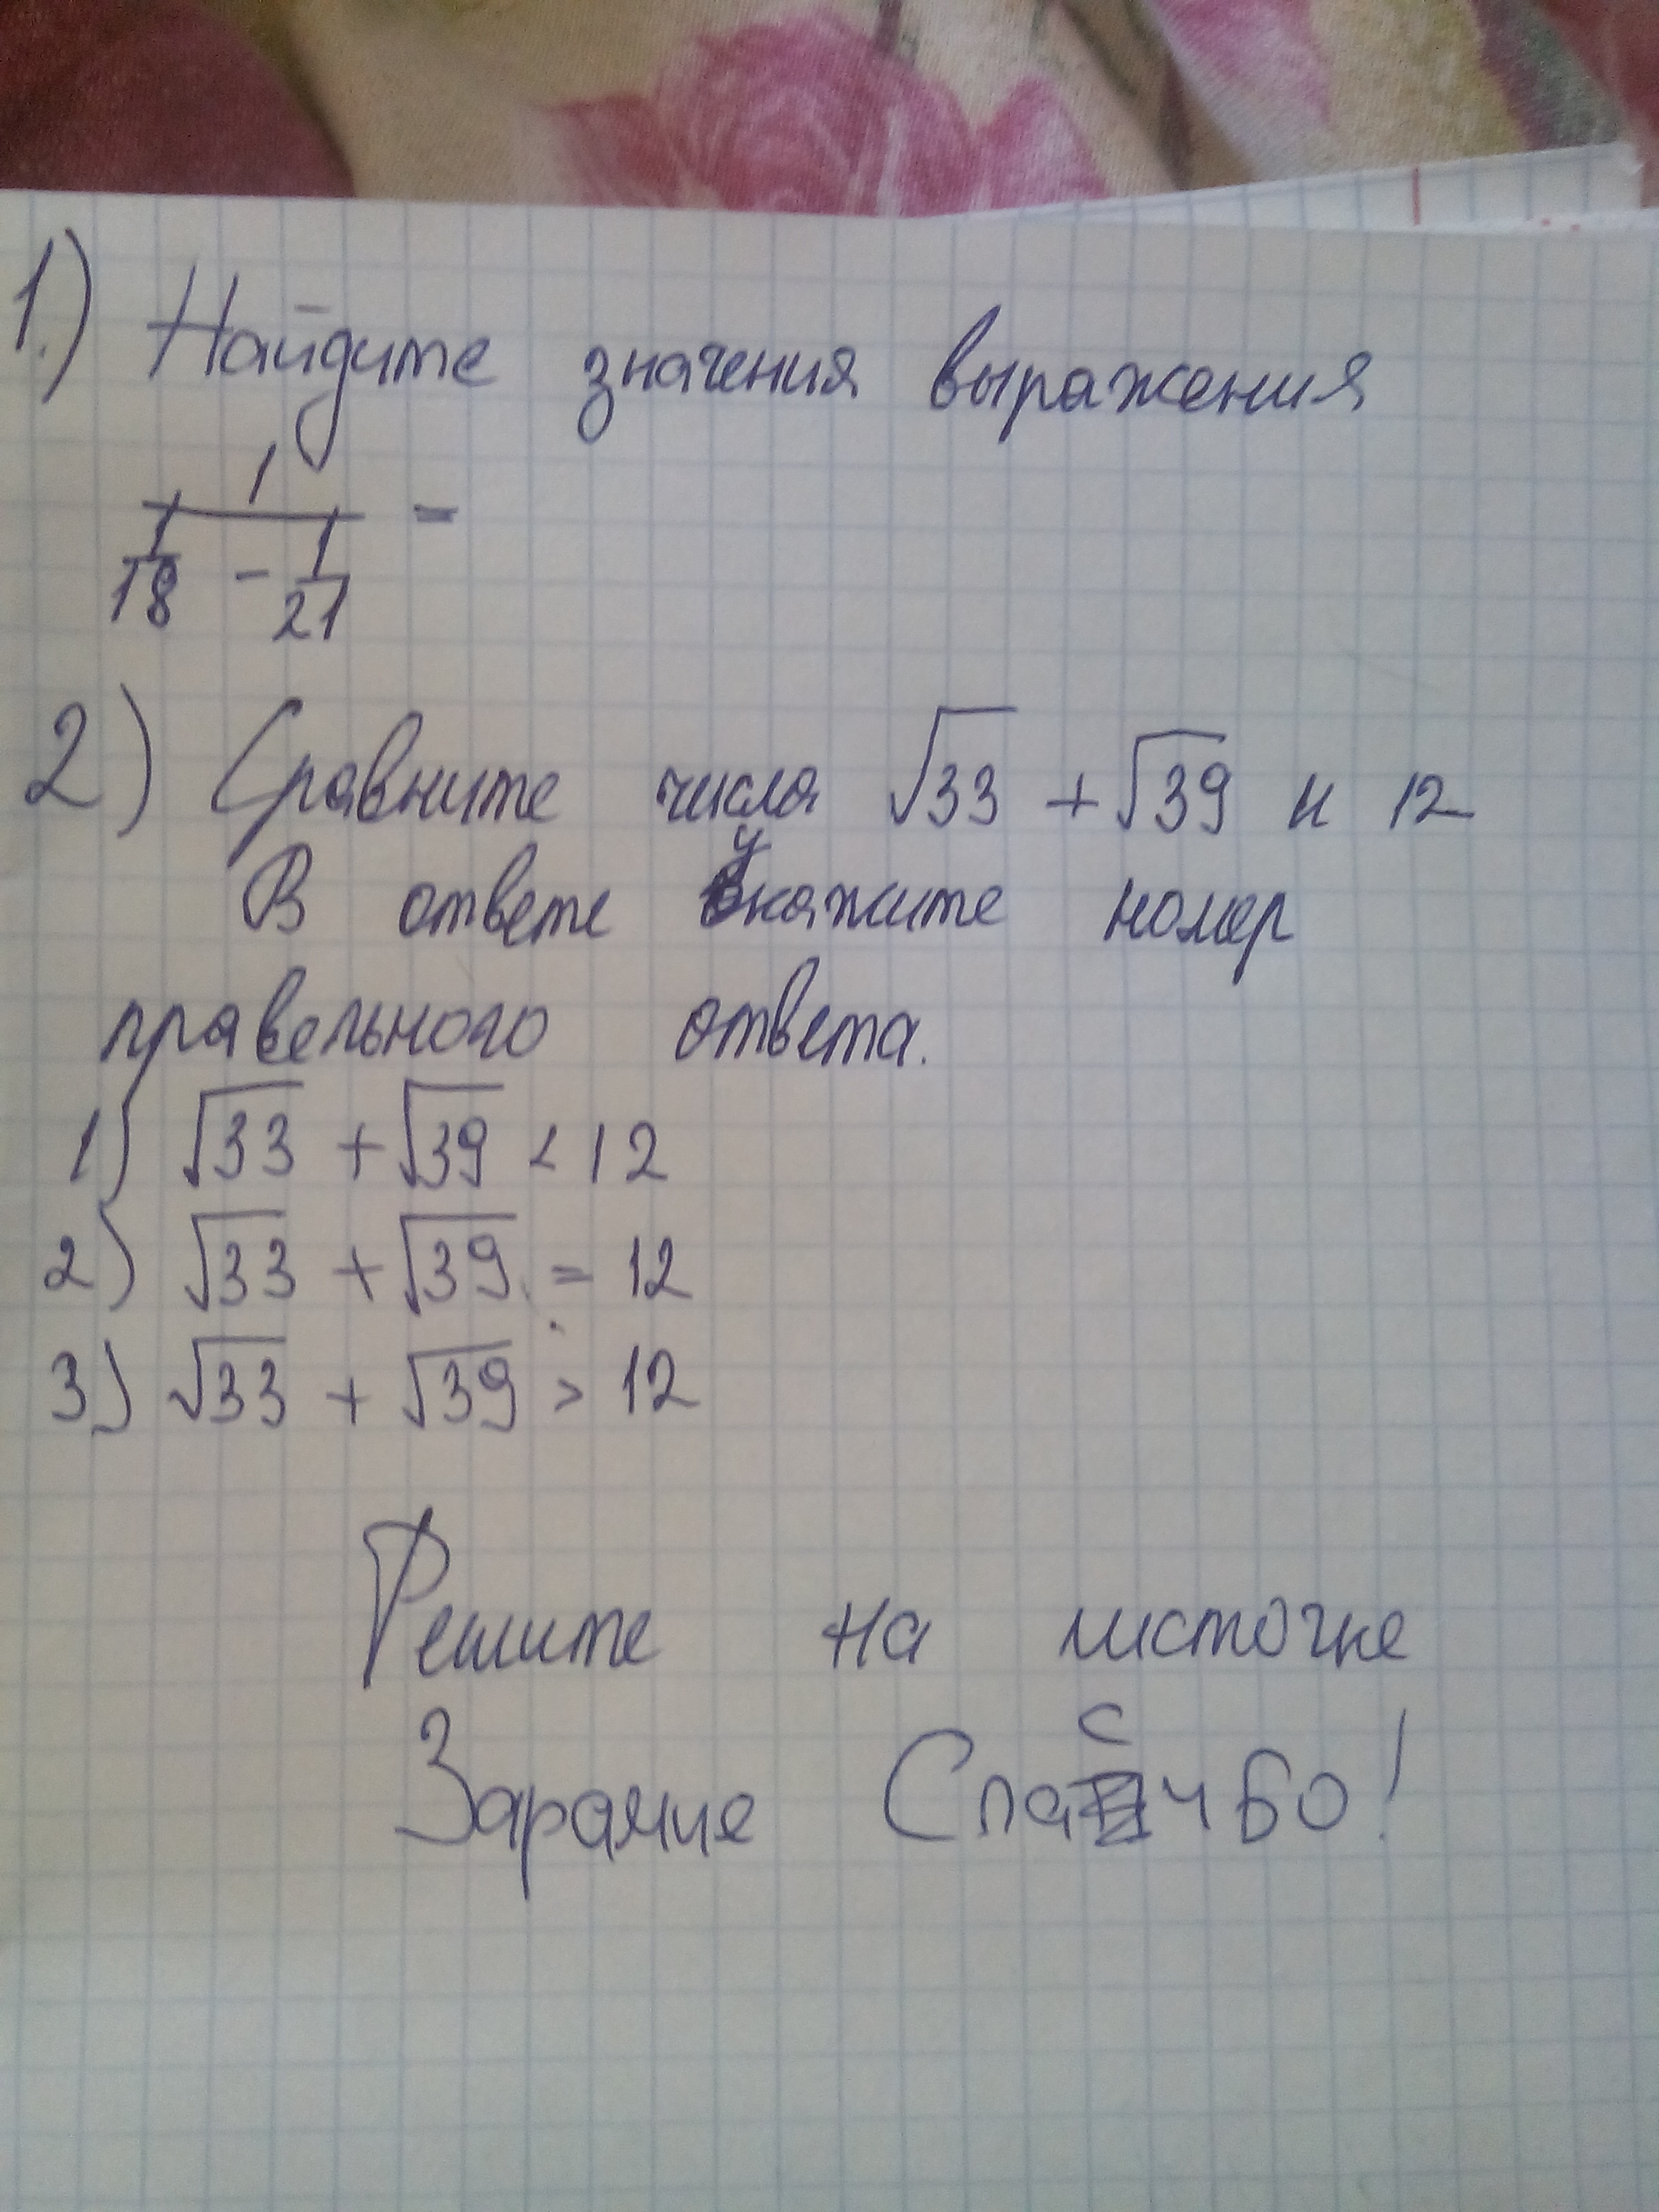 1.) Найдите значения выражения
1
1/18 - 1/21 =
2) Сравните числа √33 + √39 и 12
В ответе укажите номер
правельного ответа.
1) √33 + √39 < 12
2) √33 + √39 = 12
3) √33 + √39 > 12
Решите на листочке
Зарание Спасибо!